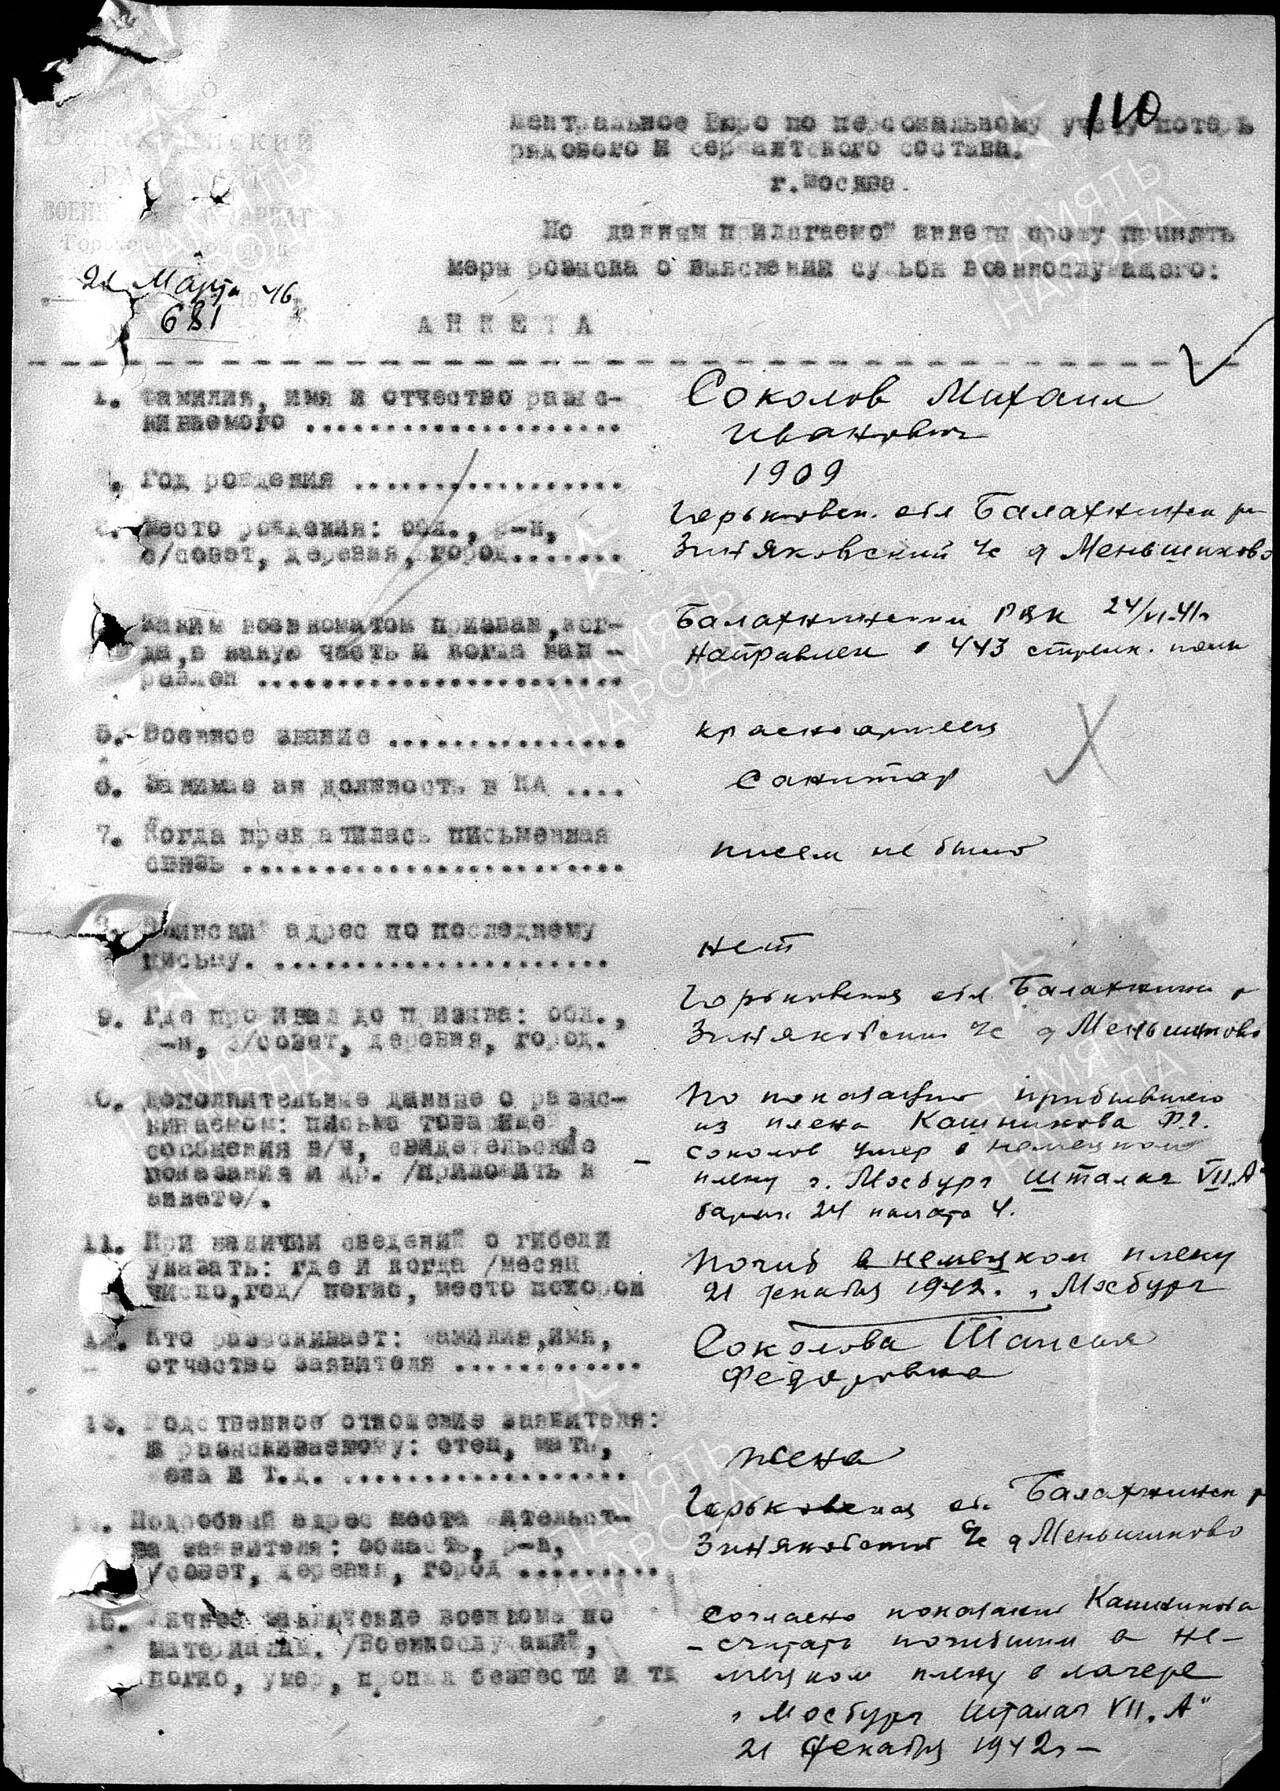 110
Центральное Бюро по персональному учету потерь
рядового и сержантского состава.
г.Москва.
Балахнинский
РАЙОННЫЙ
ВОЕННЫЙ КОМИССАРИАТ
По данным прилагаемой анкеты прошу принять
меры розыска о выяснении судьбы военнослужащего:
21 Марта 1946 г.
681
АНКЕТА
1. Фамилия, имя и отчество разыс-
киваемого ....................
Соколов Михаил
Иванович
Год рождения .................
1909
Место рождения: обл., р-н,
с/совет, деревня, город.......
Горьковск. обл Балахнинск р-н
Зиняковский с/с д Меньшиково
Каким военкоматом призван, ког-
да, в какую часть и когда нап-
равлен .......................
Балахнинским РВК 24/VI-41г
направлен в 443 стрелк. полк
5. Военное звание ...............
красноармеец
6. Занимаемая должность в КА ....
санитар
7. Когда прекратилась письменная
связь ........................
писем не было
8. Воинский адрес по последнему
письму. ......................
нет
9. Где проживал до призыва: обл.,
р-н, с/совет, деревня, город.
Горьковская обл Балахнинск р
Зиняковский с/с д Меньшиково
10. Дополнительные данные о разыс-
киваемом: письма товарищей,
сообщения в/ч, свидетельские
показания и др. /приложить к
анкете/.
По показанию прибывшего
из плена Кашникова Ф.Г.
Соколов умер в немецком
плену г. Мосбург Шталаг VII „А"
барак 24 палата 4.
11. При наличии сведений о гибели
указать: где и когда /месяц
число, год/ погиб, место похорон
Погиб в немецком плену
21 декабря 1942г. г. Мосбург
12. Кто разыскивает: фамилия, имя,
отчество заявителя ............
Соколова Таисья
Федоровна
13. Родственное отношение заявителя:
к разыскиваемому: отец, мать,
жена и т.д. ..................
жена
14. Подробный адрес места жительст-
ва заявителя: область, р-н,
с/совет, деревня, город .........
Горьковская об. Балахнинск р
Зиняковский с/с д Меньшиково
15. Личное заключение военкома по
материалам. /Военнослужащий,
погиб, умер, пропал безвести и тд
Согласно показания Кашникова
- считать погибшим в не-
мецком плену в лагере
г Мосбург Шталаг VII „А"
21 декабря 1942г -
ПАМЯТЬ
НАРОДА
ПАМЯТЬ
НАРОДА
ПАМЯТЬ
НАРОДА
ПАМЯТЬ
НАРОДА
ПАМЯТЬ
НАРОДА
ПАМЯТЬ
НАРОДА